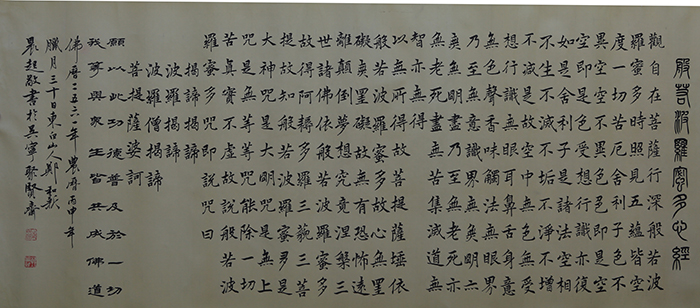 般若波羅蜜多心經
觀自在菩薩行深般若波
羅蜜多時照見五蘊皆空
度一切苦厄舍利子色不
異空空不異色色即是空
空即是色受想行識亦復
如是舍利子是諸法空相
不生不滅不垢不淨不增
不減是故空中無色無受
想行識無眼耳鼻舌身意
無色聲香味觸法無眼界
乃至無意識界無無明亦
無無明盡乃至無老死亦
無老死盡無苦集滅道無
智亦無得
以無所得故菩提薩埵依
般若波羅蜜多故心無罣
礙無罣礙故無有恐怖遠
離顛倒夢想究竟涅槃三
世諸佛依般若波羅蜜多
故得阿耨多羅三藐三菩
提故知般若波羅蜜多是
大神咒是大明咒是無上
咒是無等等咒能除一切
苦真實不虛故說般若波
羅蜜多咒即說咒曰
揭諦揭諦
波羅揭諦
波羅僧揭諦
菩提薩婆訶
願以此功德普及於一切
我等與眾生皆共成佛道
佛曆二五六一年農曆丙申年
臘月三十日東白山人鄭和
晨起敬書於吳寧聚賢齋